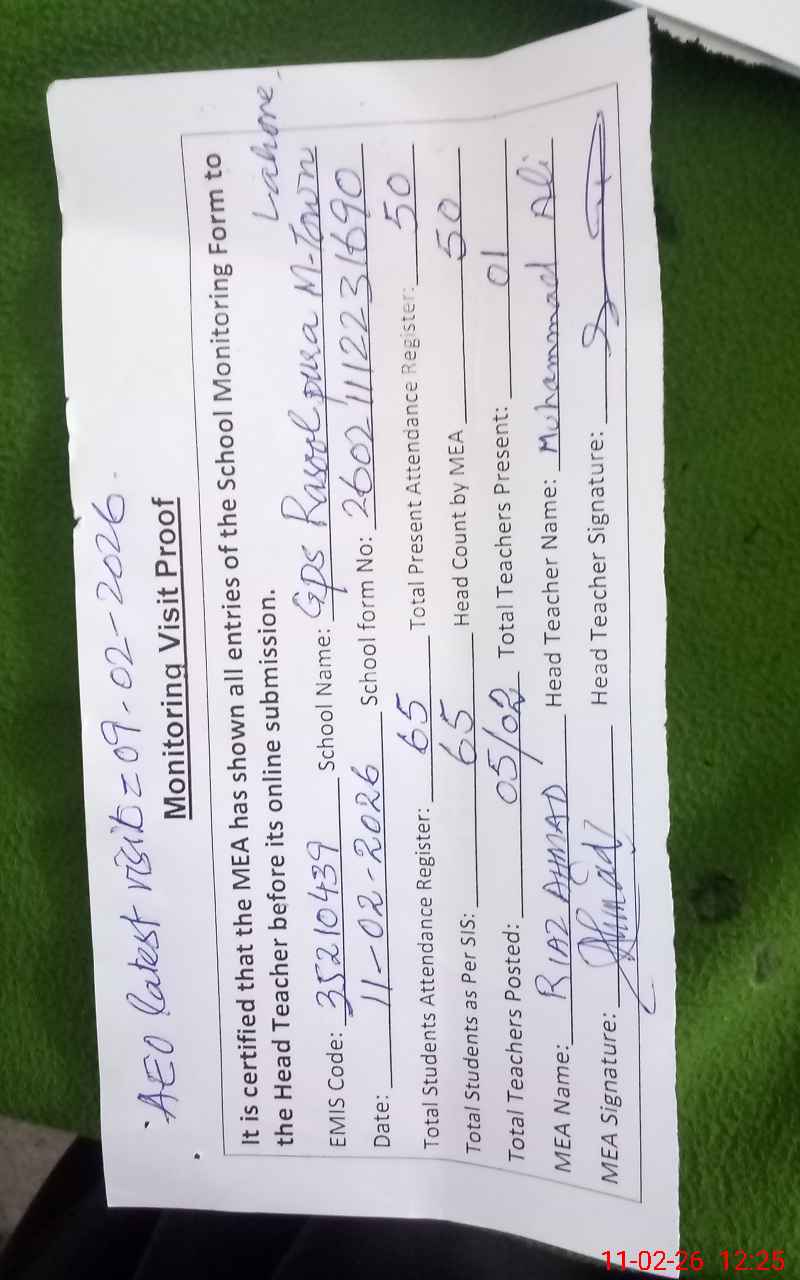 AEO latest visit = 09-02-2026.
Monitoring Visit Proof
It is certified that the MEA has shown all entries of the School Monitoring Form to
the Head Teacher before its online submission.
Lahore.
EMIS Code: 35210439 School Name: GPS Rasool pura M-Town
Date: 11-02-2026 School form No: 26021112231690
Total Students Attendance Register: 65 Total Present Attendance Register: 50
Total Students as Per SIS: 65 Head Count by MEA 50
Total Teachers Posted: 05/02 Total Teachers Present: 01
MEA Name: RIAZ AHMAD Head Teacher Name: Muhammad Ali
MEA Signature: Ahmad Head Teacher Signature:
11-02-26 12:25